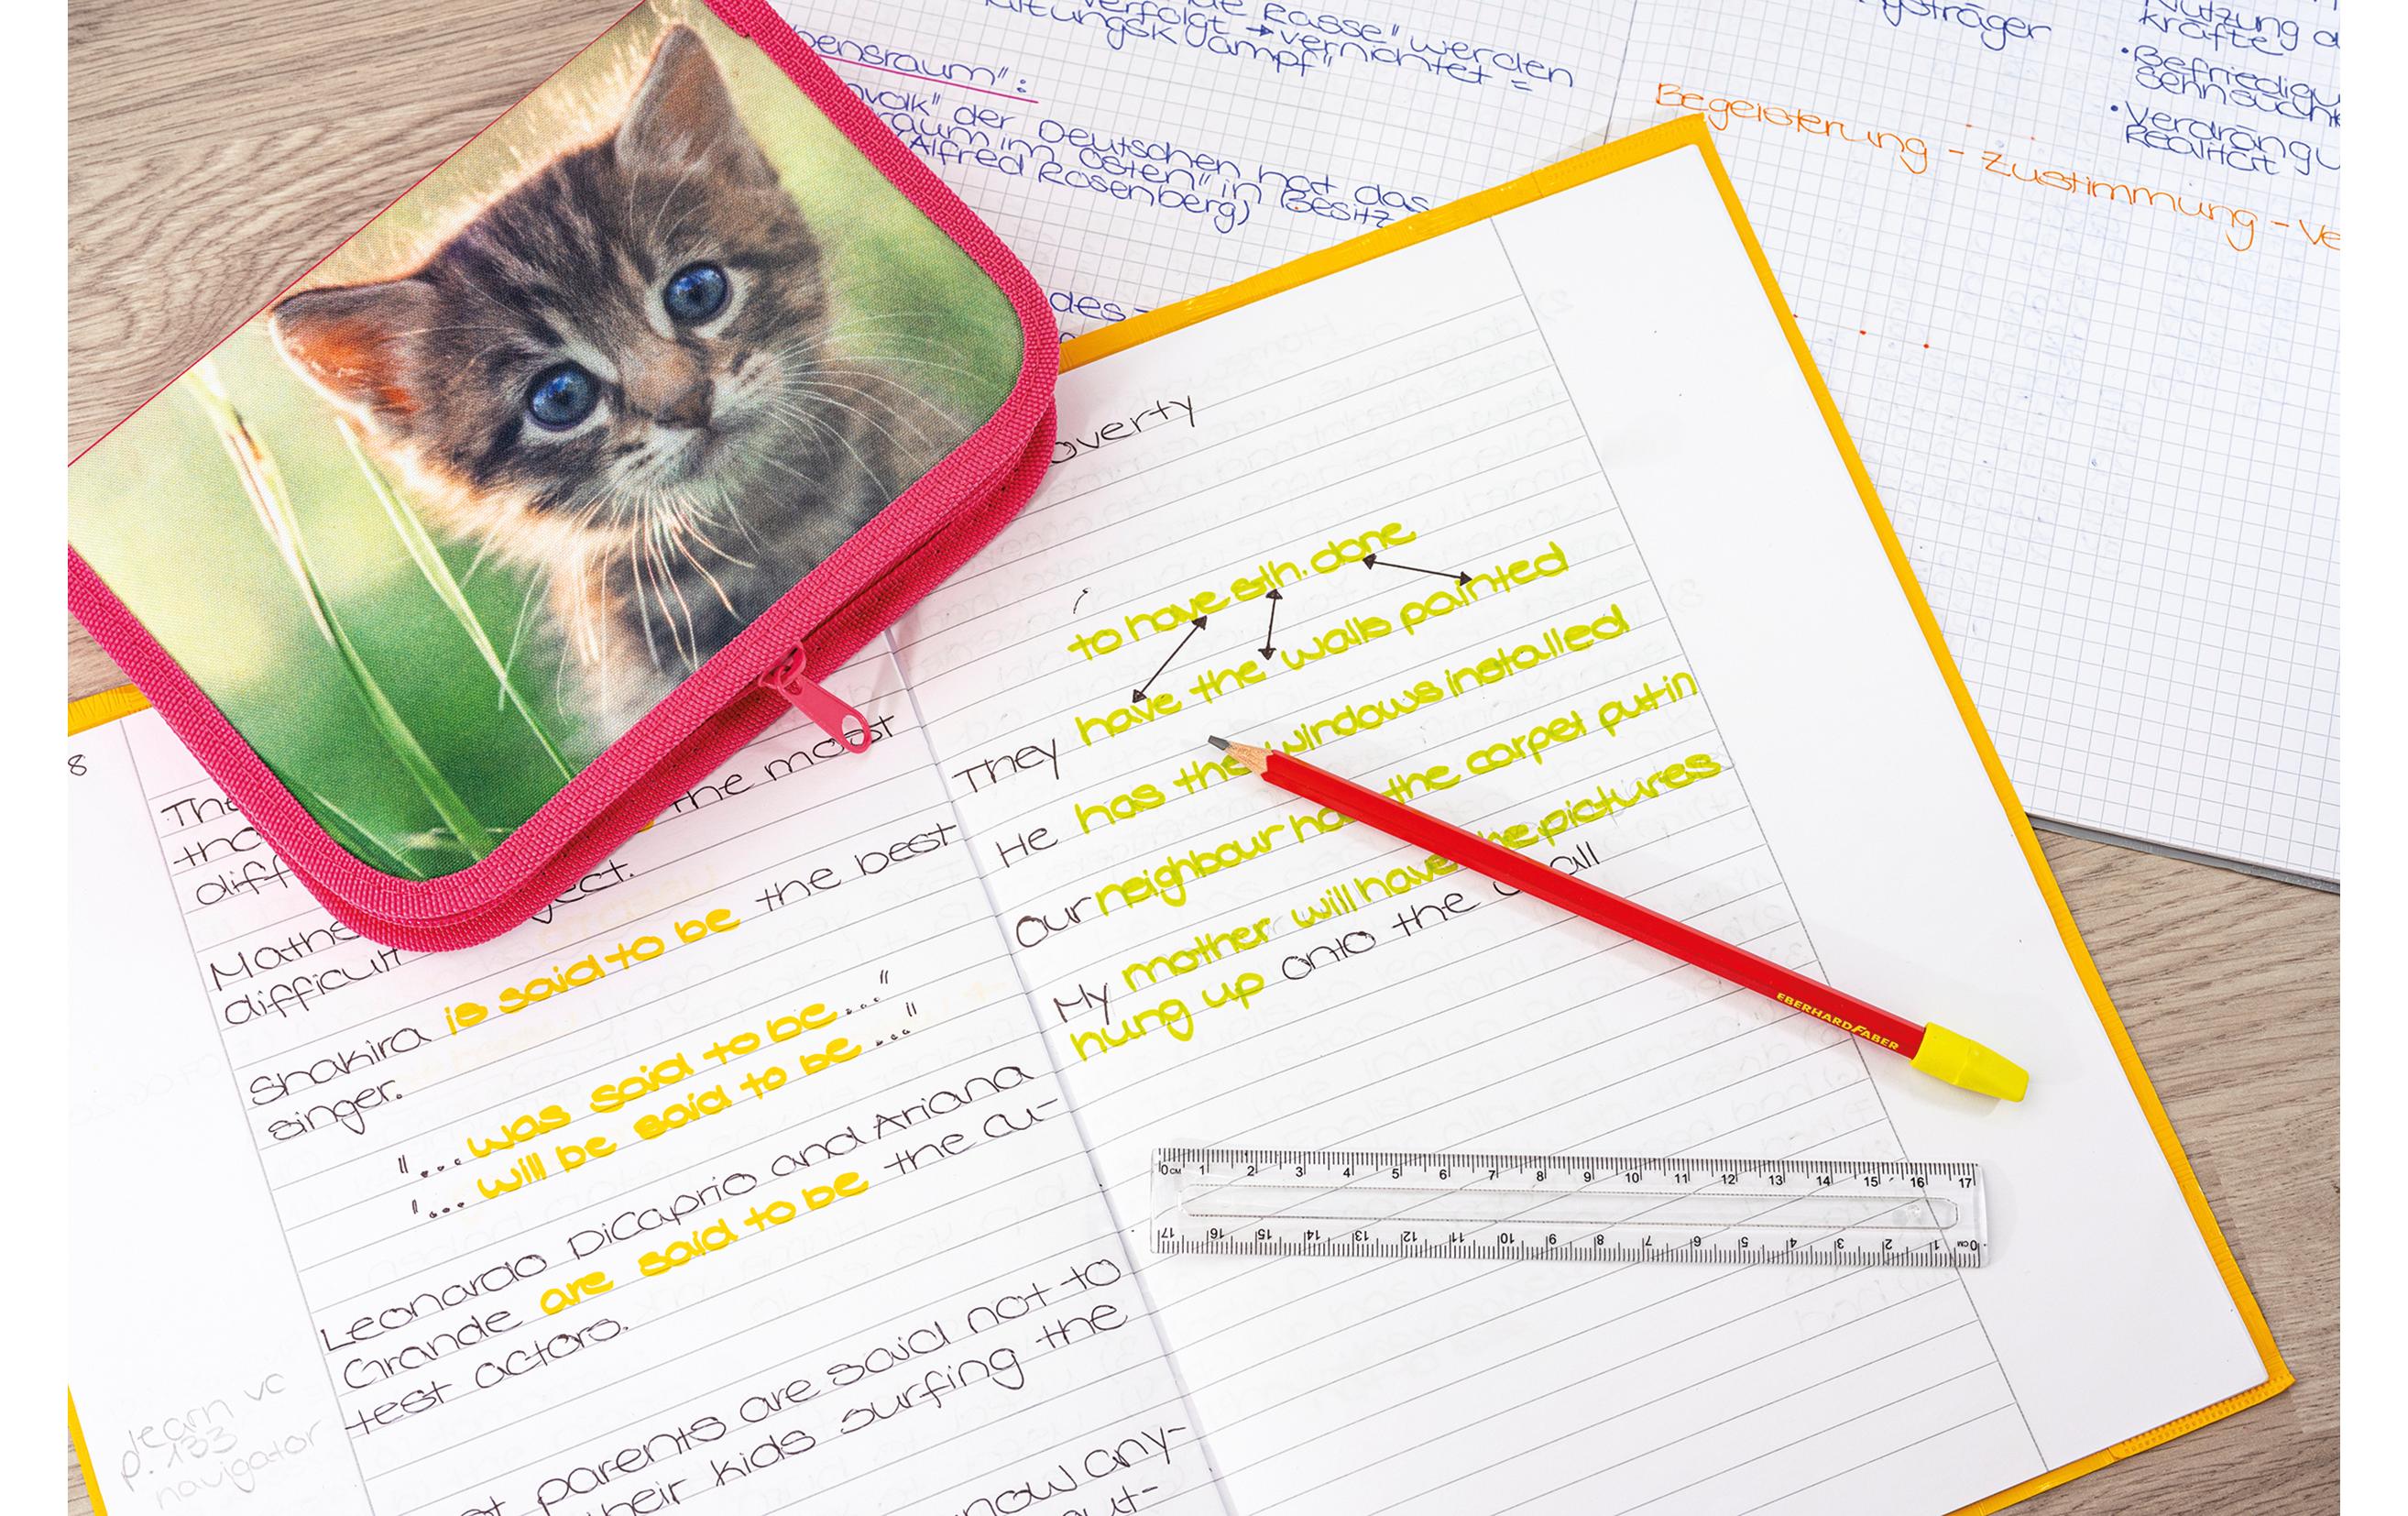 verfolgt → vernichtet =
Rasse" werden
ensraum":
der Deutschen hat das
raum im Osten" in Besitz
Alfred Rosenberg)
des -
Nutzung
kräfte
• Befriedigu
Sehnsucht
• Verdrängu
Realität
Begeisterung - Zustimmung - Ve
8
the most
ject.
Mathe
difficult
Shakira is said to be the best
singer.
"... was said to be ..."
"... will be said to be ..."
Leonardo DiCaprio and Ariana
Grande are said to be the cu-
test actors.
parents are said not to
their kids surfing the
now any-
out-
learn vc
p. 133
navigator
overty
to have sth. done
They have the walls painted
He has the windows installed
Our neighbour has the carpet put in
My mother will have the pictures
hung up onto the wall
EBERHARD FABER
0 CM 1 2 3 4 5 6 7 8 9 10 11 12 13 14 15 16 17
0 CM 1 2 3 4 5 6 7 8 9 10 11 12 13 14 15 16 17